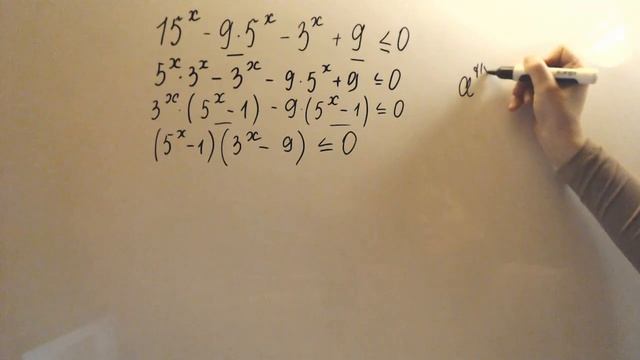 15ˣ - 9·5ˣ - 3ˣ + 9 ≤ 0
5ˣ·3ˣ - 3ˣ - 9·5ˣ + 9 ≤ 0
3ˣ·(5ˣ - 1) - 9·(5ˣ - 1) ≤ 0
(5ˣ - 1)(3ˣ - 9) ≤ 0
a